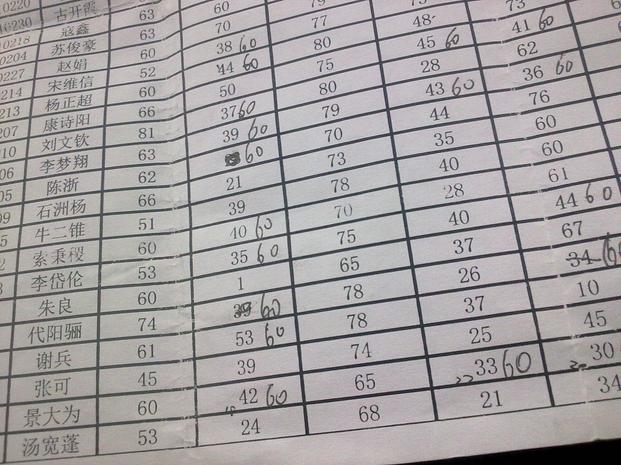 0220
0230 古开霞 63
0218 寇鑫 63
0204 苏俊豪 63 60
0227 赵娟 60 70 70
214 宋维信 52 38 60 77 73
213 杨正超 60 44 60 80 48 41 60
207 康诗阳 66 50 75 45 60 62
210 刘文钦 81 37 60 80 28 36 60
06 李梦翔 63 39 60 79 43 60 76
05 陈浙 62 60 70 44 60
09 石洲杨 66 21 73 35 60
5 牛二锥 51 39 78 40 61
2 索秉稷 60 40 60 70 28 44 60
3 李岱伦 53 35 60 75 40 67
朱良 60 1 65 37 34 60
代阳骊 74 39 60 78 26 10
谢兵 61 53 60 78 37 45
张可 45 39 74 25 30
景大为 60 42 60 65 33 60 34
汤宽蓬 53 24 68 21